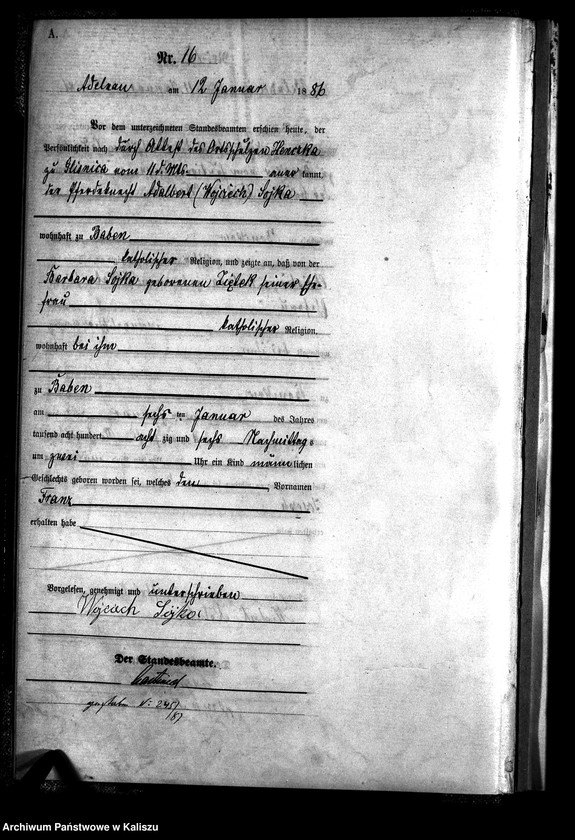 A.
Nr. 16
Adelnau am 12 Januar 1886
Vor dem unterzeichneten Standesbeamten erschien heute, der
Persönlichkeit nach durch Attest des Ortsschulzen
zu Glisnica vom 11 d. Mts. aner kannt,
der Pferdeknecht Adalbert (Wojciech) Sojka
wohnhaft zu Baben
katholischer Religion, und zeigte an, daß von der
Barbara Sojka geborenen seiner Ehe-
frau
katholischer Religion,
wohnhaft bei ihm
zu Baben
am sechs ten Januar des Jahres
tausend acht hundert acht zig und sechs Nachmittags
um zwei Uhr ein Kind männlichen
Geschlechts geboren worden sei, welches den Vornamen
Franz
erhalten habe
Vorgelesen, genehmigt und unterschrieben
Sojka
Der Standesbeamte.
Archiwum Państwowe w Kaliszu